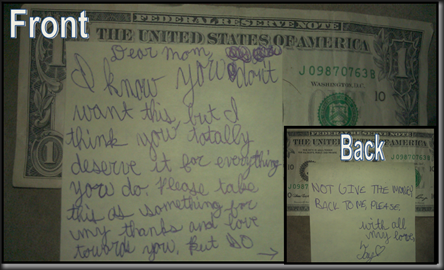 Front
FEDERAL RESERVE NOTE
THE UNITED STATES OF AMERICA
Dear Mom,
I know you don't
want this, but I
think you totally
deserve it for everything
you do. Please take
this as something for
my thanks and love
toward you. But DO →
WASHINGTON, D.C.
10
1
Back
NOT GIVE THE MONEY
BACK TO ME, PLEASE
with all
my love,